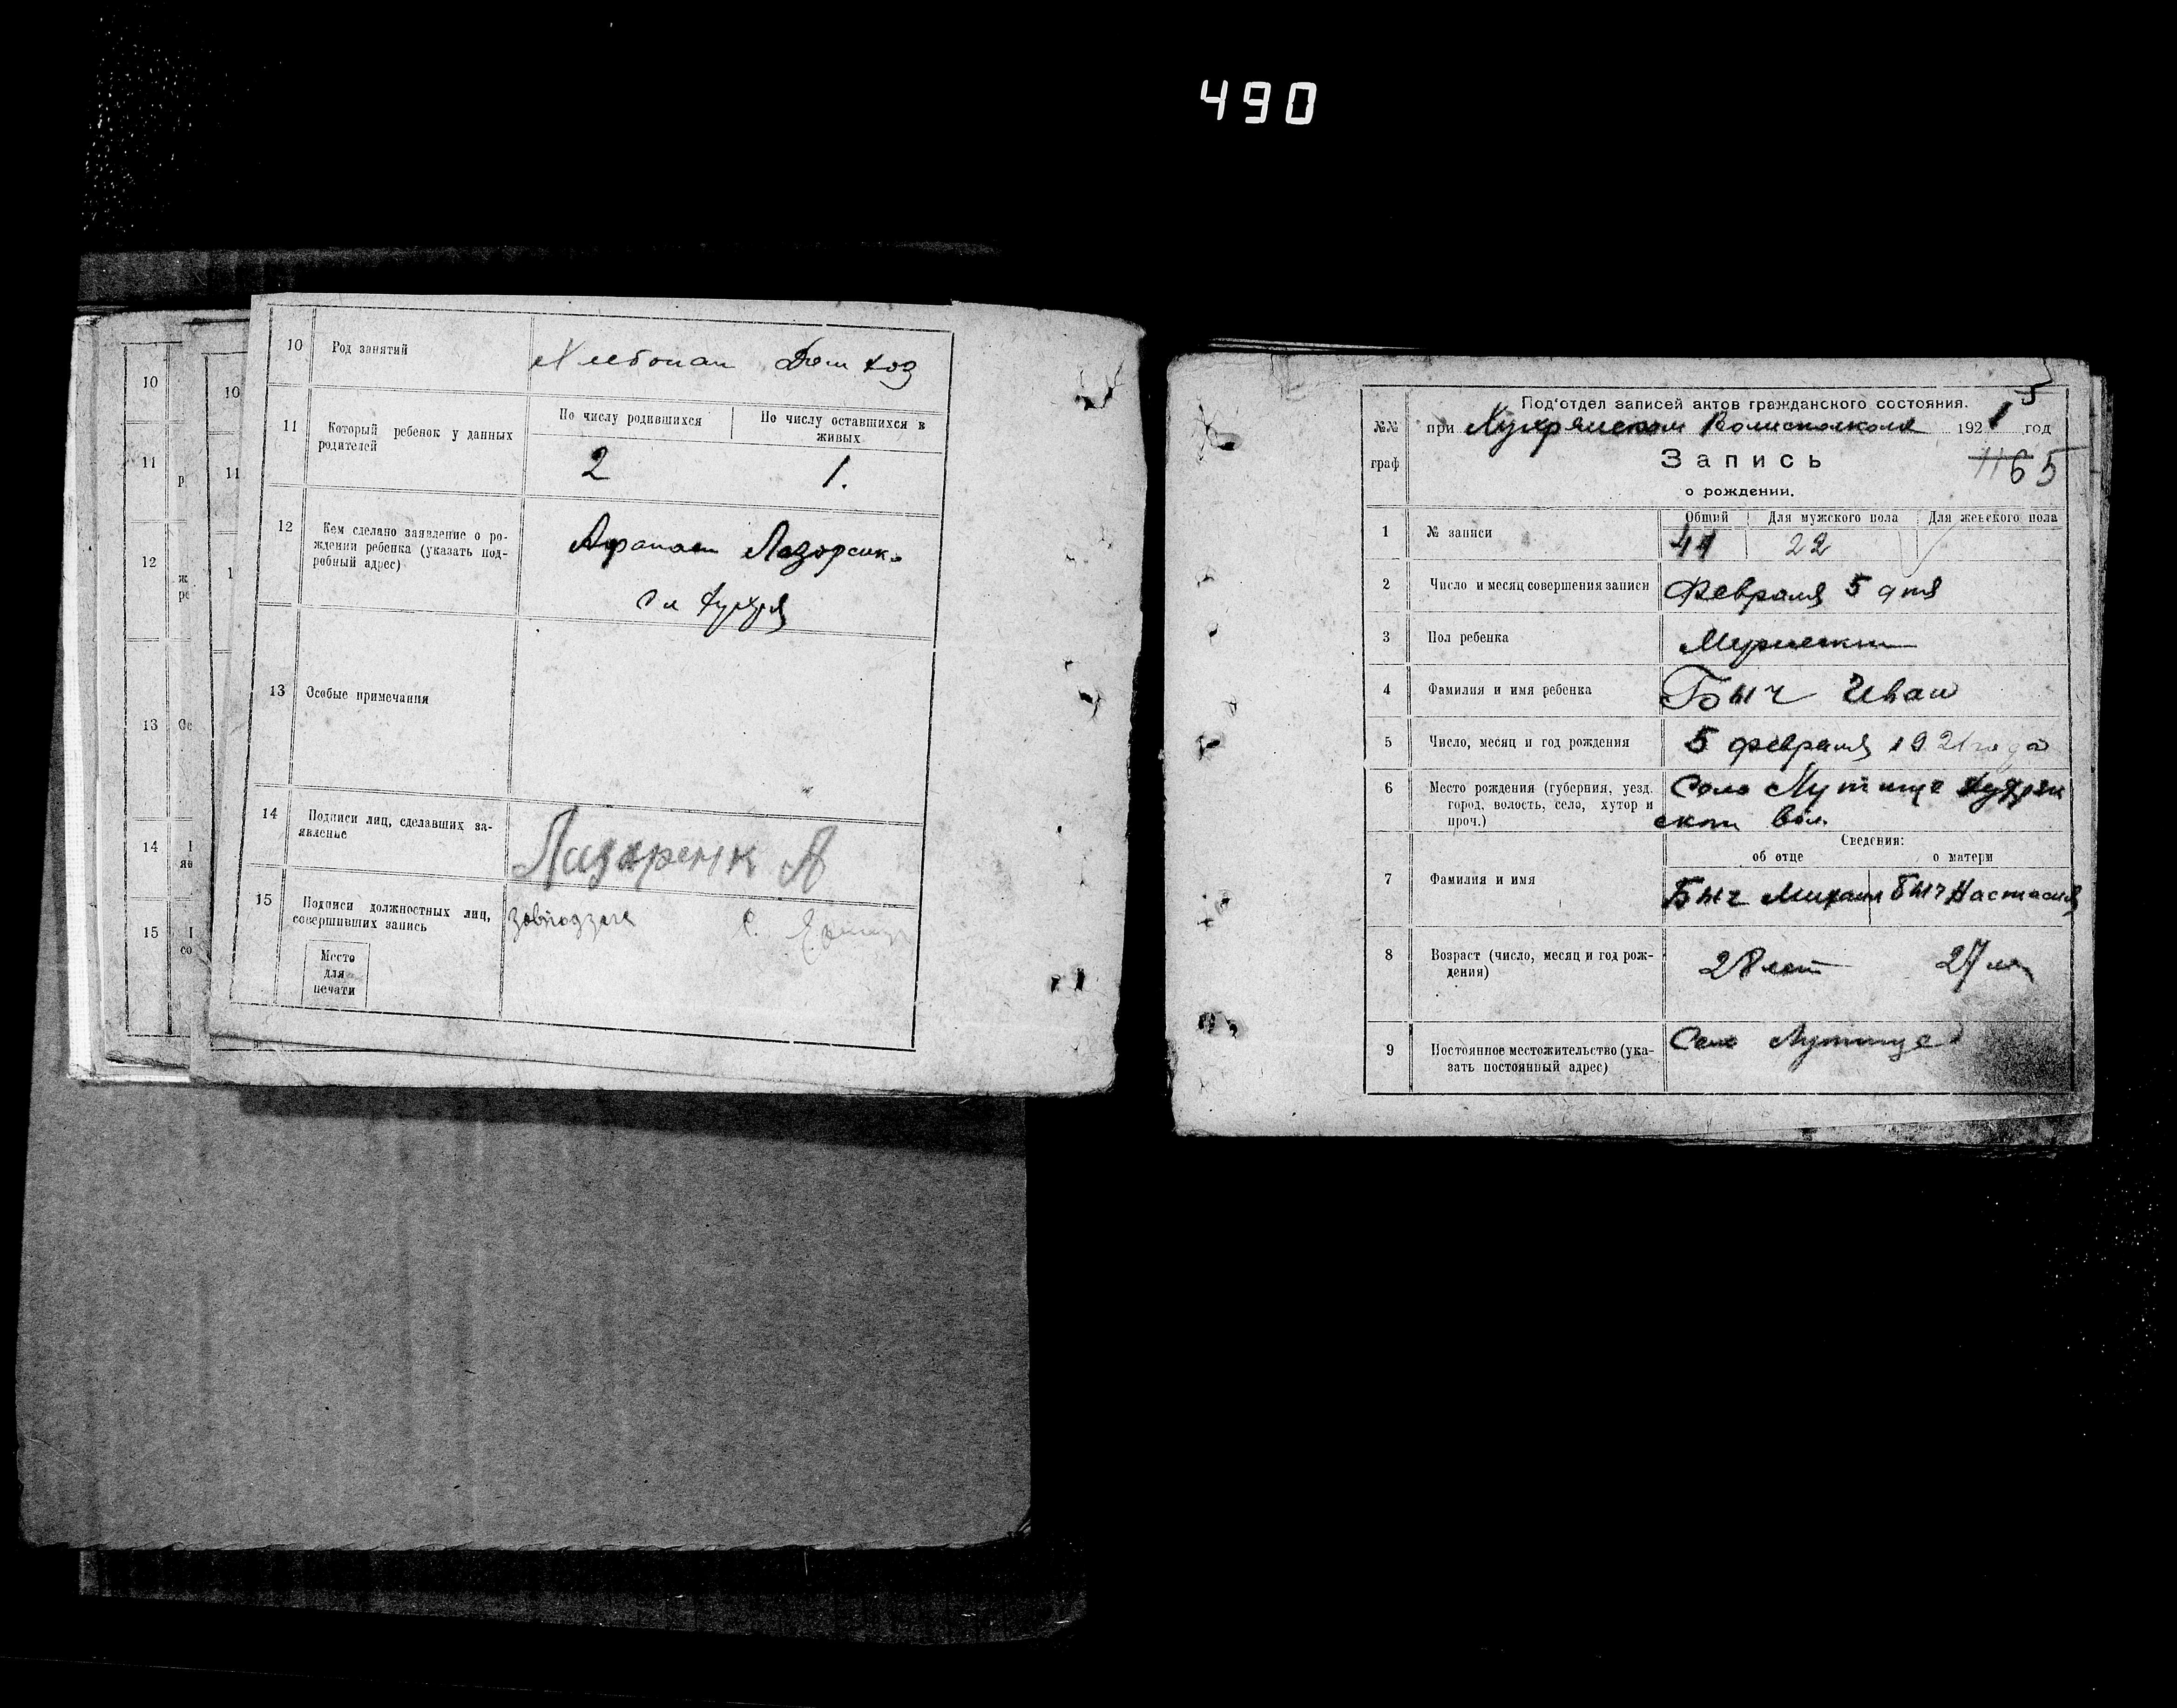 490
10 Род занятий
Хлебопаш Дом хоз
11 Который ребенок у данных
родителей
По числу родившихся
По числу оставшихся в
живых
2 1.
12 Кем сделано заявление о ро-
ждении ребенка (указать под-
робный адрес)
Афанаси Лазорснк.
13 Особые примечания
14 Подписи лиц, сделавших за-
явление
Лазаренк А
15 Подписи должностных лиц,
совершивших запись
завподзаге
Место
для
печати
10
11
12
13
14
15
10
11
Под'отдел записей актов гражданского состояния.
№№
граф
при Волисполкоме 1921 год
5
Запись
65
о рождении.
1 № записи
Общий Для мужского пола Для женского пола
41 22
2 Число и месяц совершения записи Февраля 5 дня
3 Пол ребенка Мужески
4 Фамилия и имя ребенка Быч Иван
5 Число, месяц и год рождения 5 февраля 1921 года
6 Место рождения (губерния, уезд,
город, волость, село, хутор и
проч.)
Село Лутище
ской вол.
Сведения:
об отце о матери
7 Фамилия и имя Быч Михаил Быч Настасия
8 Возраст (число, месяц и год рож-
дения)
28 лет 27 ле
9 Постоянное местожительство (ука-
зать постоянный адрес)
Село Лутище